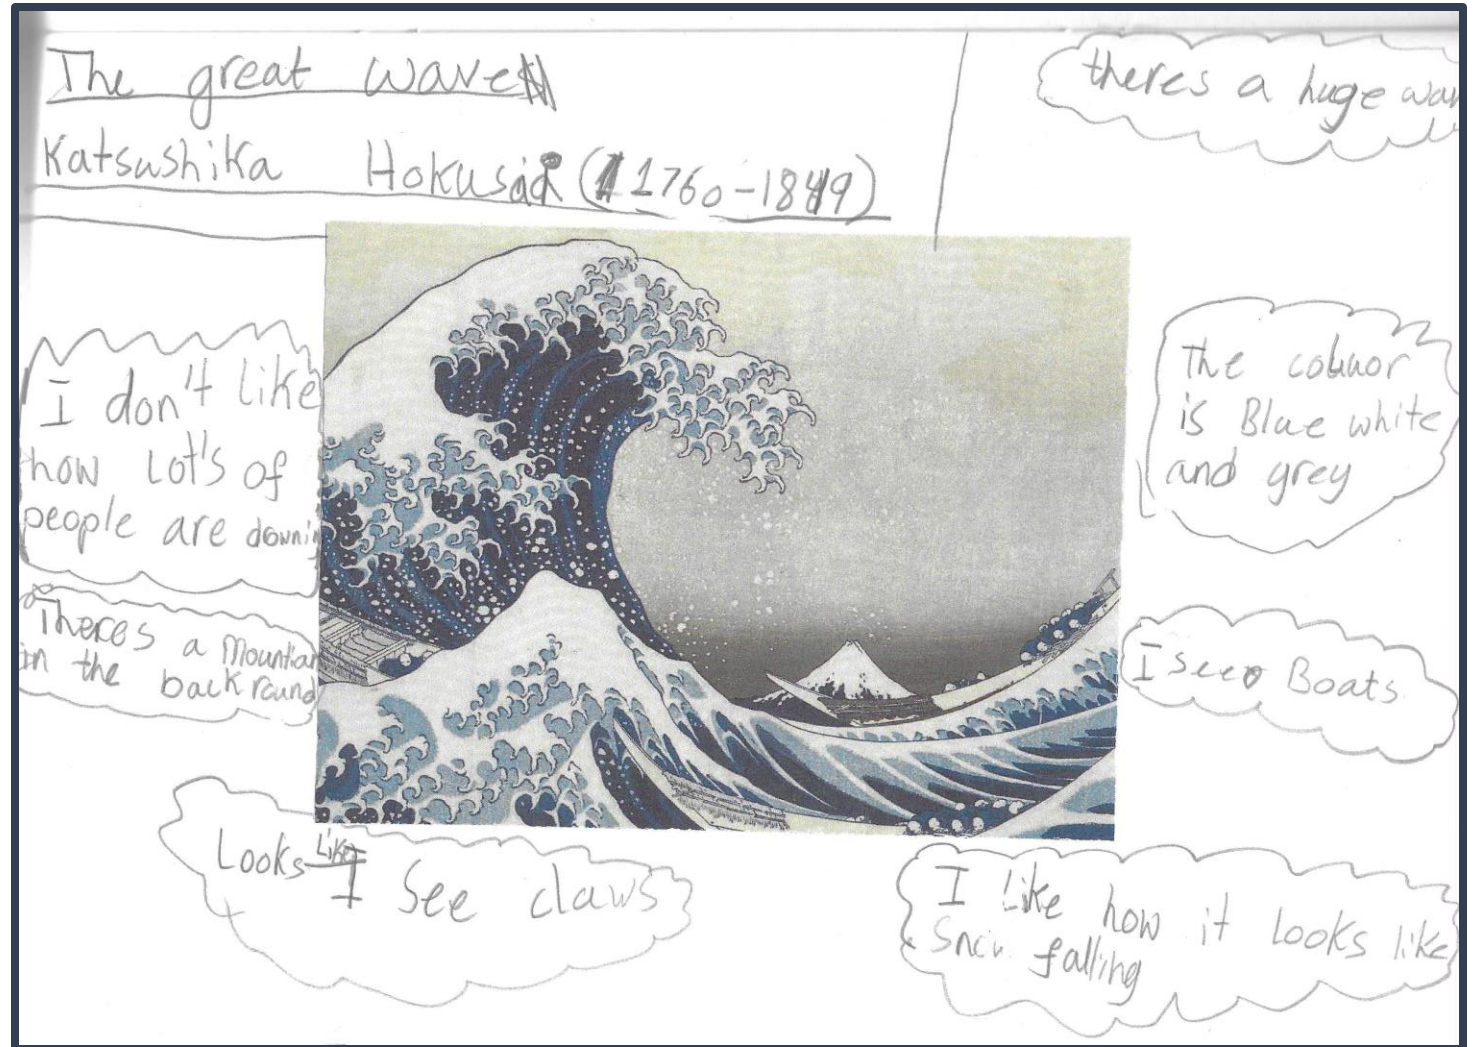 The great wave
Katsushika Hokusai (1760-1849)
theres a huge
I don't like
how Lot's of
people are
The
is Blue white
and grey
Theres a Mountian
in the back round
I see Boats
Looks Like
I See claws
I Like how it looks like
falling